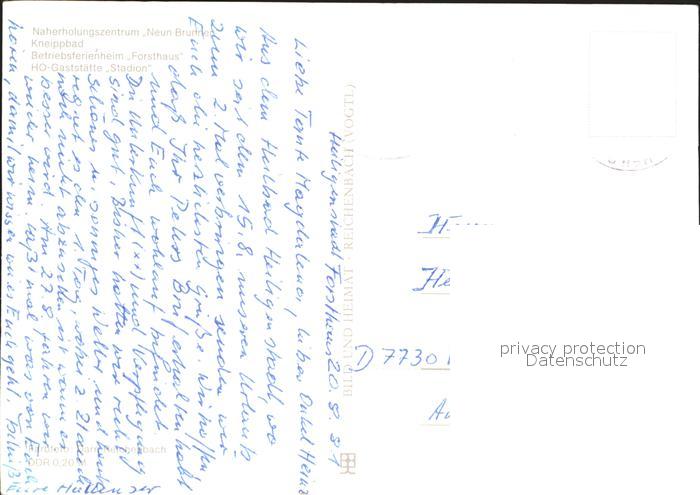 Naherholungszentrum „Neun Brunnen"
Kneippbad
Betriebsferienheim „Forsthaus"
HO-Gaststätte „Stadion"
Heiligenstadt Forsthaus 20. 8. 81
Liebe Tante Magdalena, lieber Onkel Heinz
Aus dem Heilbad Heiligenstadt, wo
wir seit dem 15.8. unseren Urlaub
zum 2. Mal verbringen senden wir
Euch die herzlichsten Grüße. Wir hoffen
daß Ihr Peters Brief erhalten habt
und Euch wohlauf befindet.
Die Unterkunft (xx) und Verpflegung
sind gut. Bisher hatten wir recht
schönes u. sonniges Wetter und heute
regnet es den 1. Tag, wobei
noch nicht abzusehen ist wann es
besser wird. Am 27.8. fahren wir
wieder heim. Laßt mal was von Euch
hören, damit wir wissen wie es Euch geht.
Eure
BILD UND HEIMAT · REICHENBACH (VOGTL)
H
He
D 7730
DDR 0,20 M
privacy protection
Datenschutz